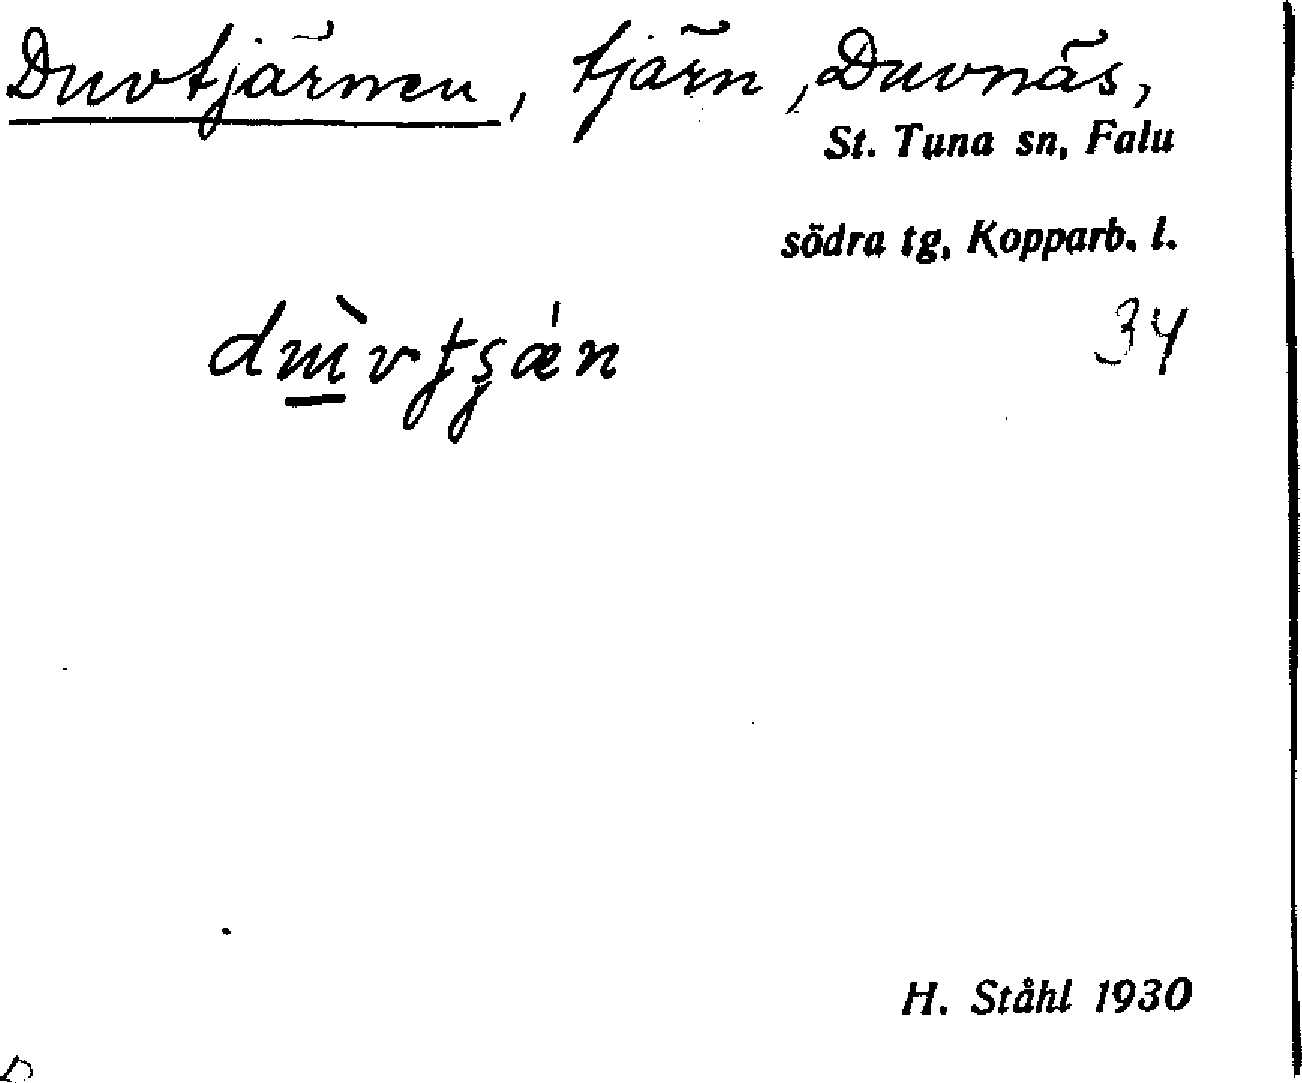 Duvtjärnen, tjärn, Duvnäs,
St. Tuna sn, Falu
södra tg, Kopparb. l.
34
H. Ståhl 1930